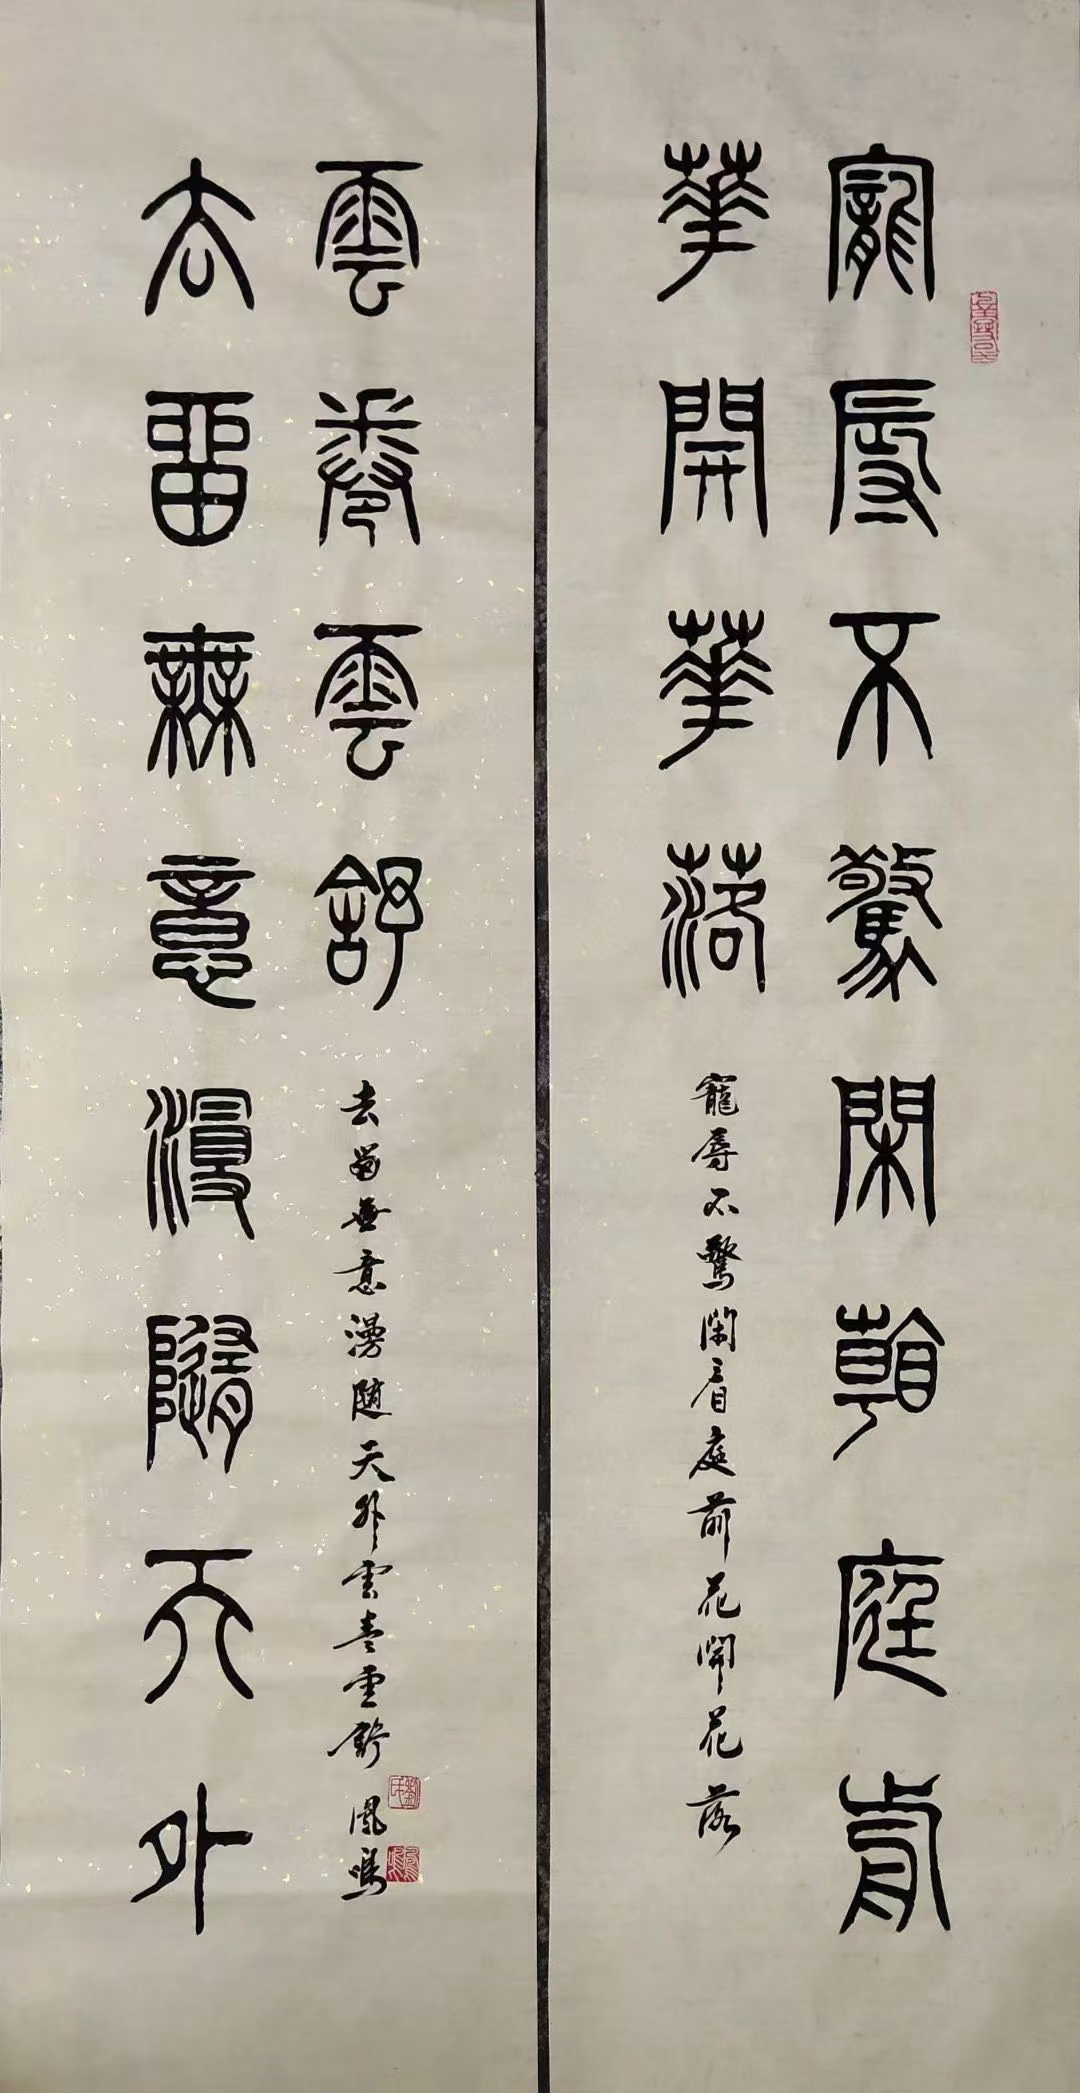 寵辱不驚閑看庭前
華開華落
寵辱不驚閑看庭前花開花落
去留無意漫隨天外
雲卷雲舒
去留無意漫随天外雲卷雲舒
鳳鳴
劉氏